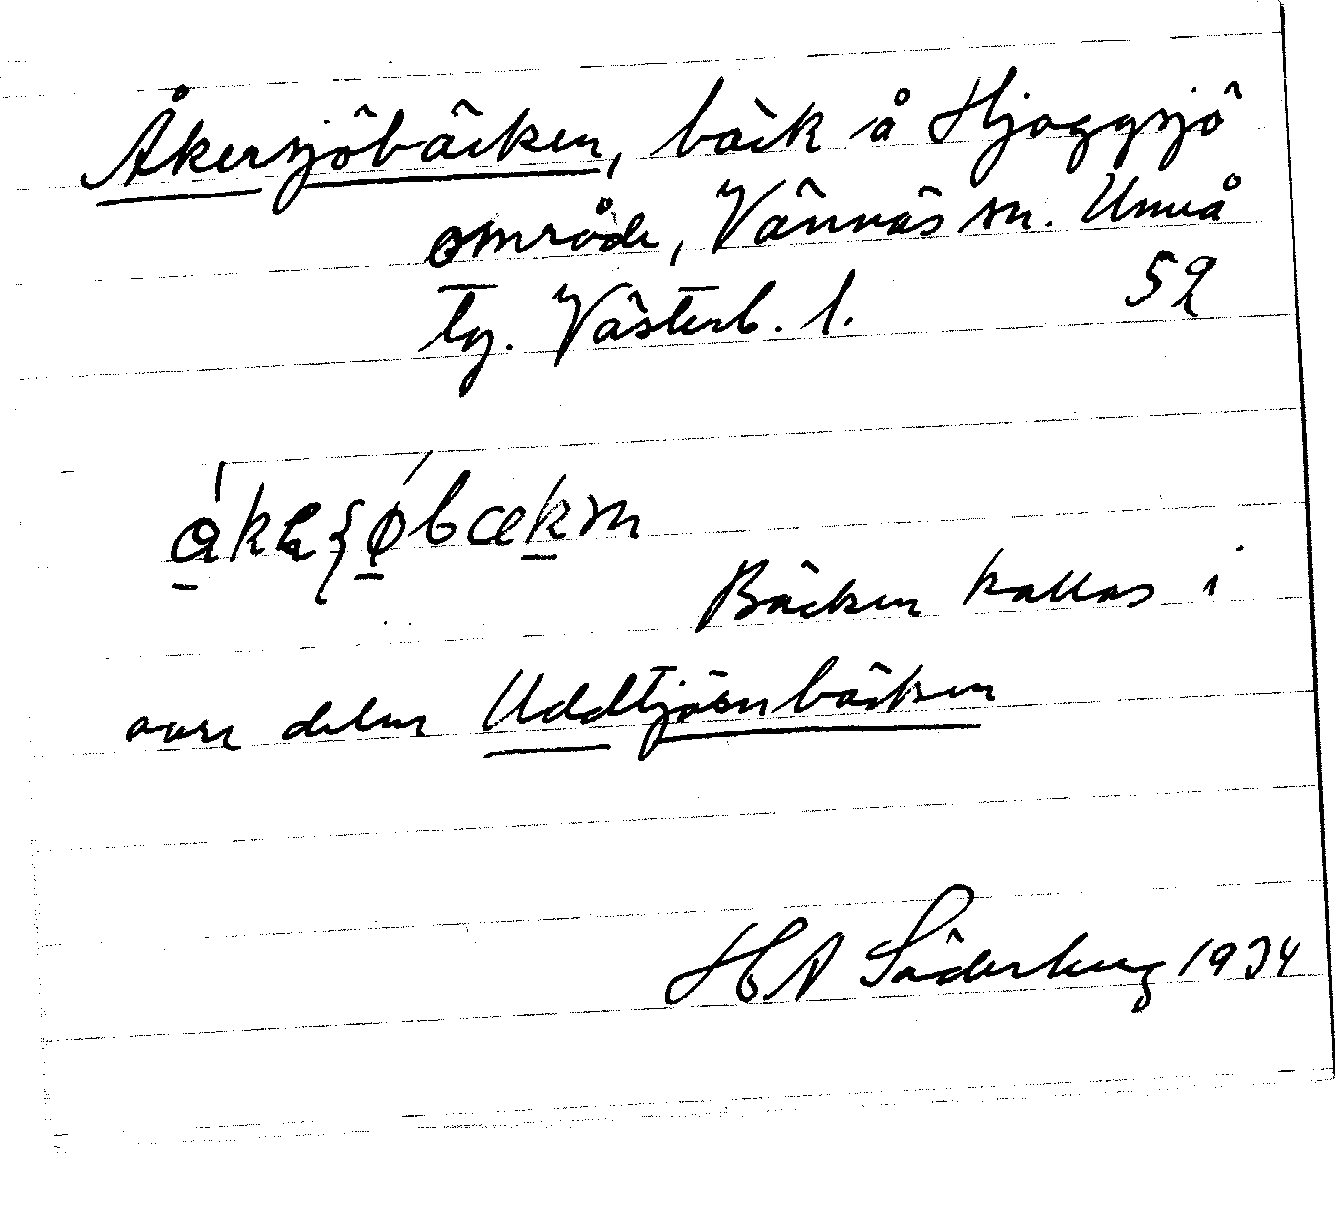 Åkersjöbäcken, bäck å Hjoggsjö
område, Vännäs sn. Umeå
tg. Västerb. l. 52
Bäcken kallas i
övre delen Uddtjärnbäcken
HA Söderberg 1934